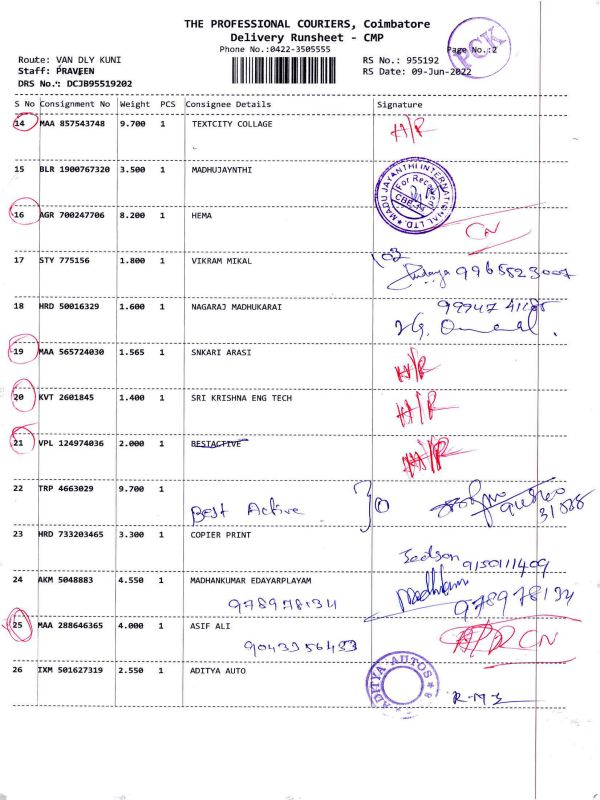 THE PROFESSIONAL COURIERS, Coimbatore
Delivery Runsheet - CMP
Phone No.:0422-3505555
Page No.:2
PCK
Route: VAN DLY KUNI
RS No.: 955192
Staff: PRAVEEN
RS Date: 09-Jun-2022
DRS No.: DCJB95519202
S No Consignment No Weight PCS Consignee Details Signature
14 MAA 857543748 9.700 1 TEXTCITY COLLAGE H/R
15 BLR 1900767320 3.500 1 MADHUJAYNTHI
MADU JAYANTHI INTERNATIONAL LTD.
16 AGR 700247706 8.200 1 HEMA CN
17 STY 775156 1.800 1 VIKRAM MIKAL
18 HRD 50016329 1.600 1 NAGARAJ MADHUKARAI
19 MAA 565724030 1.565 1 SNKARI ARASI H/R
20 KVT 2601845 1.400 1 SRI KRISHNA ENG TECH H/R
21 VPL 124974036 2.000 1 BESTACTIVE H/R
22 TRP 4663029 9.700 1
Best Active
23 HRD 733203465 3.300 1 COPIER PRINT
9150111409
24 AKM 5048883 4.550 1 MADHANKUMAR EDAYARPLAYAM
978978134
978978134
25 MAA 288646365 4.000 1 ASIF ALI CN
26 IXM 501627319 2.550 1 ADITYA AUTO
ADITYA AUTOS